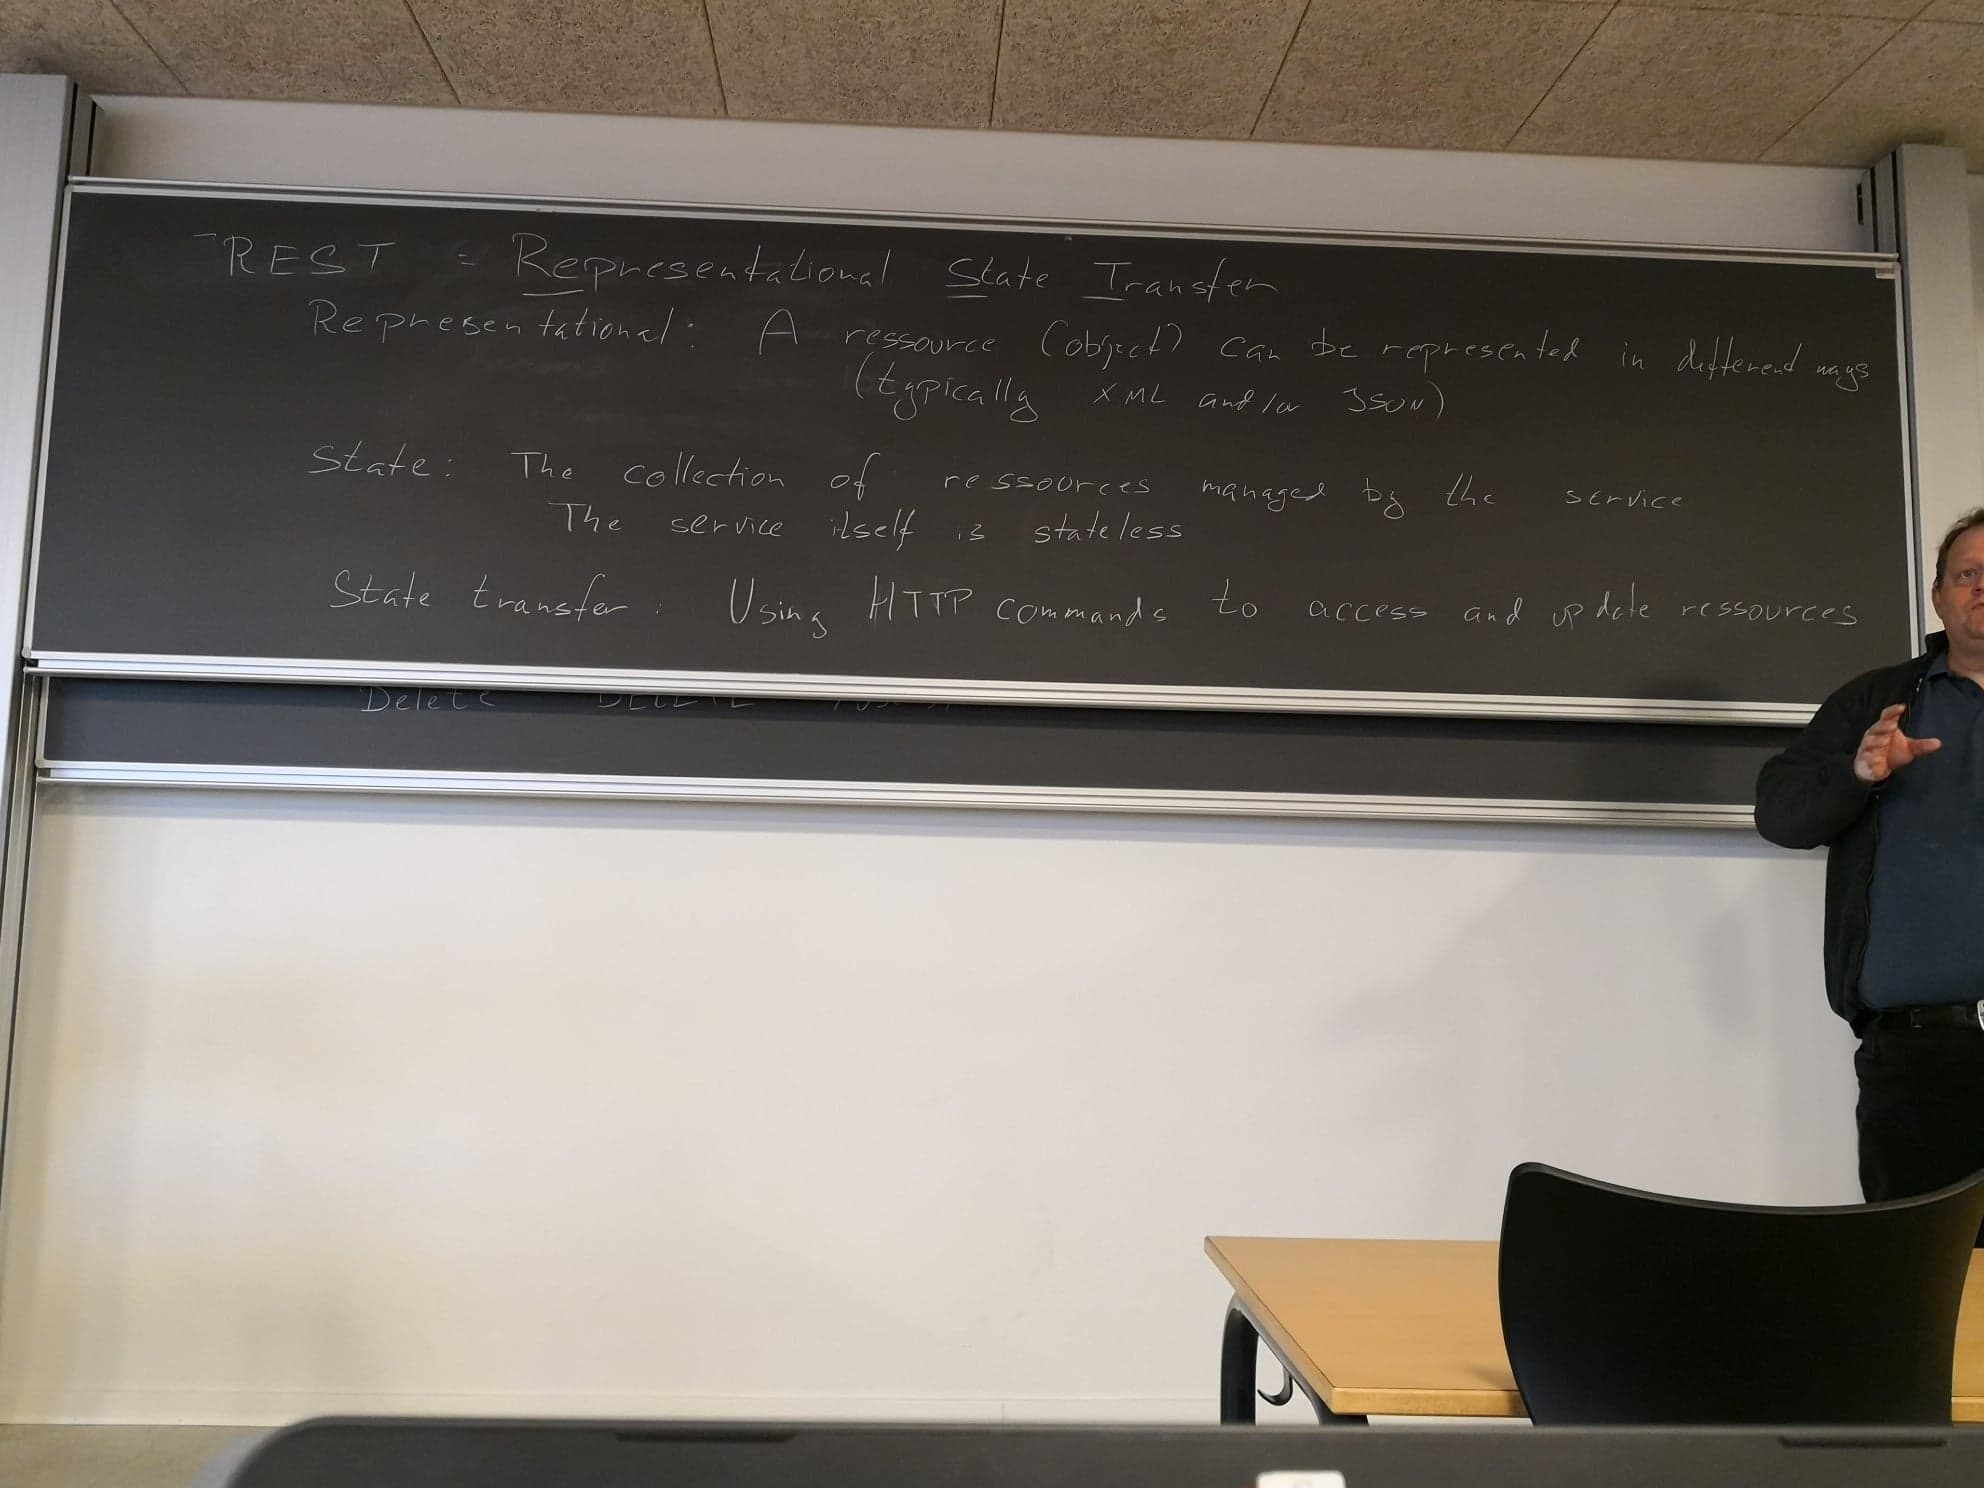 - REST = Representational State Transfer
Representational: A ressource (object) can be represented in different ways
(typically XML and/or JSON)
State: The collection of ressources managed by the service
The service itself is stateless
State transfer: Using HTTP commands to access and update ressources
Delete DELETE